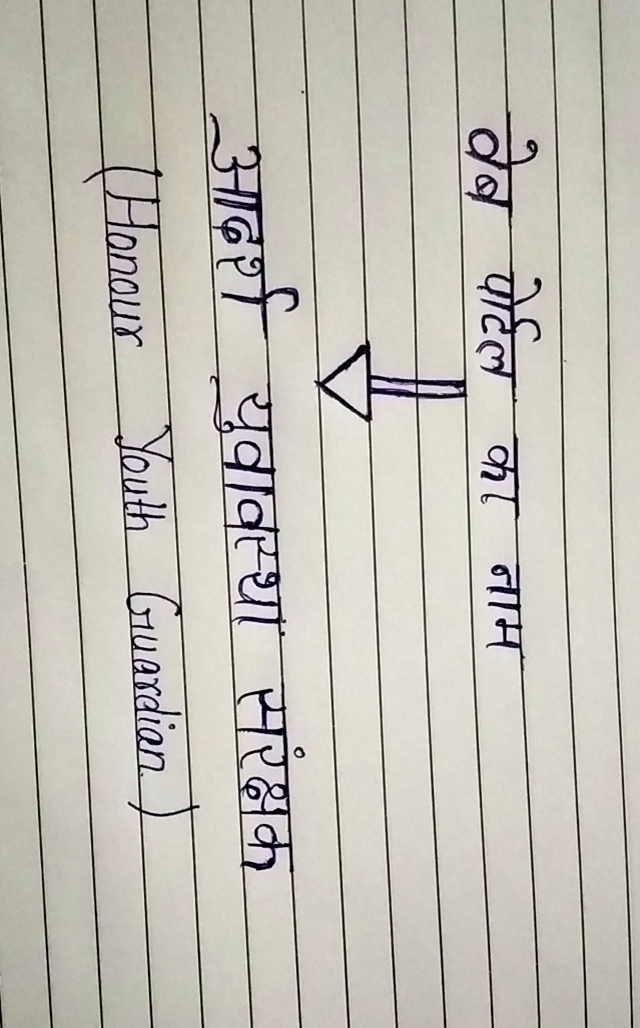 वेब पोर्टल का नाम
आदर्श युवावस्था संरक्षक
(Honour Youth Guardian)